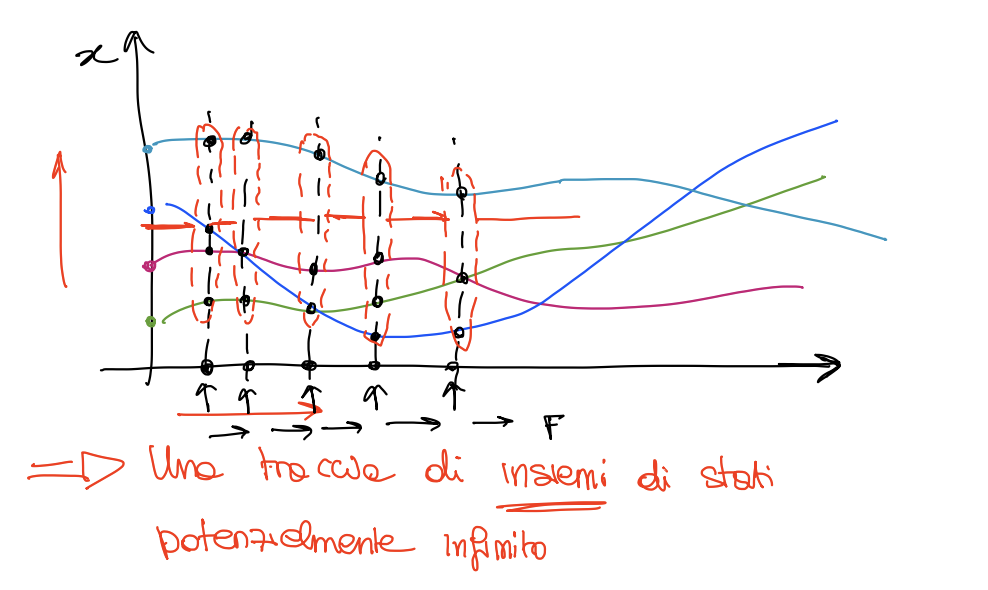 x
F
⇒ Una traccia di insiemi di stati
potenzialmente infinito